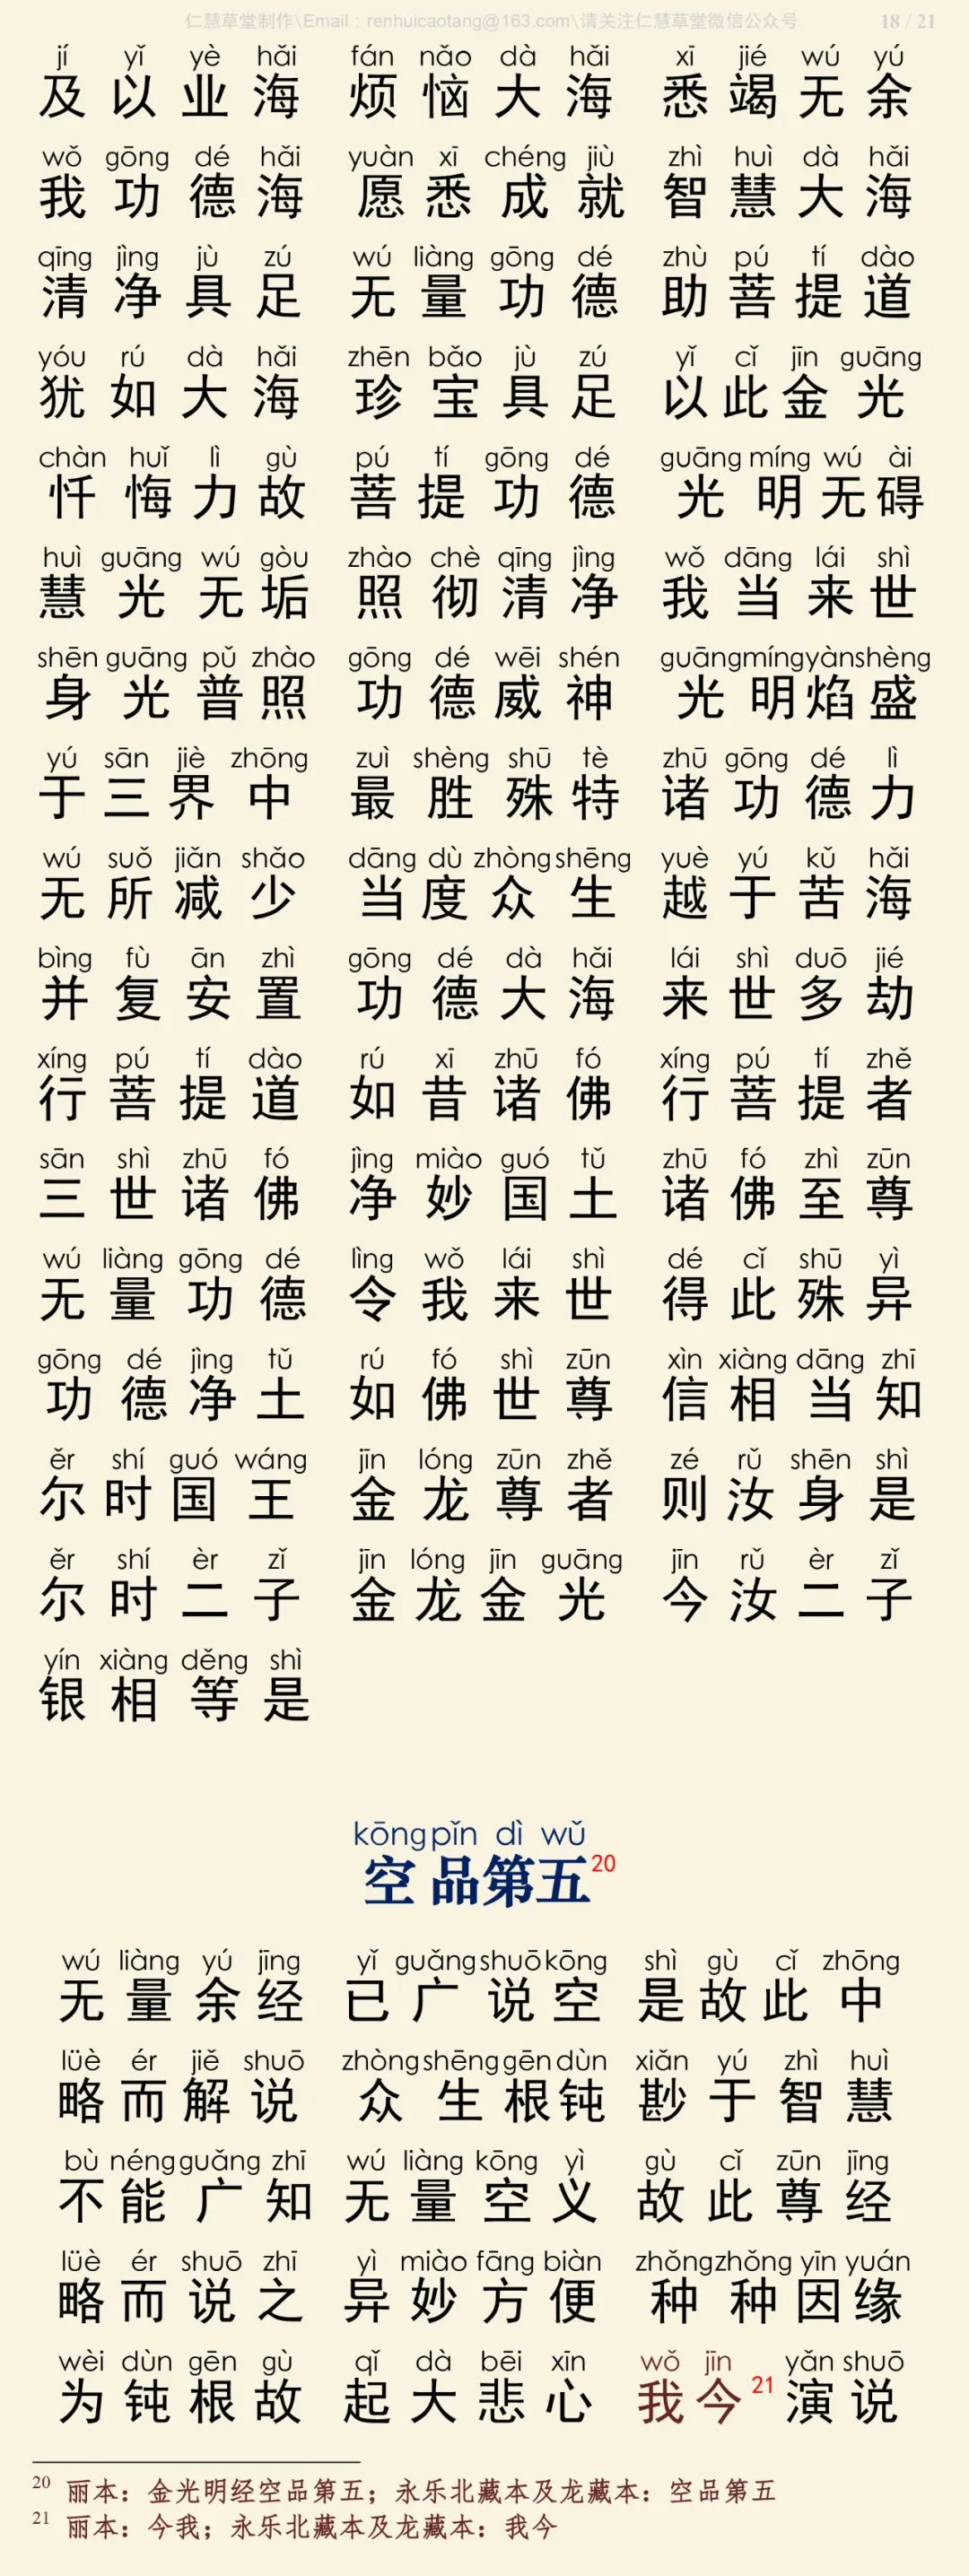 仁慧草堂制作\Email：renhuicaotang@163.com\请关注仁慧草堂微信公众号 18 / 21
jí yǐ yè hǎi fán nǎo dà hǎi xī jié wú yú
及以业海 烦恼大海 悉竭无余
wǒ gōng dé hǎi yuàn xī chéng jiù zhì huì dà hǎi
我功德海 愿悉成就 智慧大海
qīng jìng jù zú wú liàng gōng dé zhù pú tí dào
清净具足 无量功德 助菩提道
yóu rú dà hǎi zhēn bǎo jù zú yǐ cǐ jīn guāng
犹如大海 珍宝具足 以此金光
chàn huǐ lì gù pú tí gōng dé guāng míng wú ài
忏悔力故 菩提功德 光明无碍
huì guāng wú gòu zhào chè qīng jìng wǒ dāng lái shì
慧光无垢 照彻清净 我当来世
shēn guāng pǔ zhào gōng dé wēi shén guāng míng yàn shèng
身光普照 功德威神 光明焰盛
yú sān jiè zhōng zuì shèng shū tè zhū gōng dé lì
于三界中 最胜殊特 诸功德力
wú suǒ jiǎn shǎo dāng dù zhòng shēng yuè yú kǔ hǎi
无所减少 当度众生 越于苦海
bìng fù ān zhì gōng dé dà hǎi lái shì duō jié
并复安置 功德大海 来世多劫
xíng pú tí dào rú xī zhū fó xíng pú tí zhě
行菩提道 如昔诸佛 行菩提者
sān shì zhū fó jìng miào guó tǔ zhū fó zhì zūn
三世诸佛 净妙国土 诸佛至尊
wú liàng gōng dé lìng wǒ lái shì dé cǐ shū yì
无量功德 令我来世 得此殊异
gōng dé jìng tǔ rú fó shì zūn xìn xiàng dāng zhī
功德净土 如佛世尊 信相当知
ěr shí guó wáng jīn lóng zūn zhě zé rǔ shēn shì
尔时国王 金龙尊者 则汝身是
ěr shí èr zǐ jīn lóng jīn guāng jīn rǔ èr zǐ
尔时二子 金龙金光 今汝二子
yín xiàng děng shì
银相等是
kōng pǐn dì wǔ
空品第五20
wú liàng yú jīng yǐ guǎng shuō kōng shì gù cǐ zhōng
无量余经 已广说空 是故此中
lüè ér jiě shuō zhòng shēng gēn dùn xiǎn yú zhì huì
略而解说 众生根钝 尠于智慧
bù néng guǎng zhī wú liàng kōng yì gù cǐ zūn jīng
不能广知 无量空义 故此尊经
lüè ér shuō zhī yì miào fāng biàn zhǒng zhǒng yīn yuán
略而说之 异妙方便 种种因缘
wèi dùn gēn gù qǐ dà bēi xīn wǒ jīn yǎn shuō
为钝根故 起大悲心 我今21演说
20 丽本：金光明经空品第五；永乐北藏本及龙藏本：空品第五
21 丽本：今我；永乐北藏本及龙藏本：我今